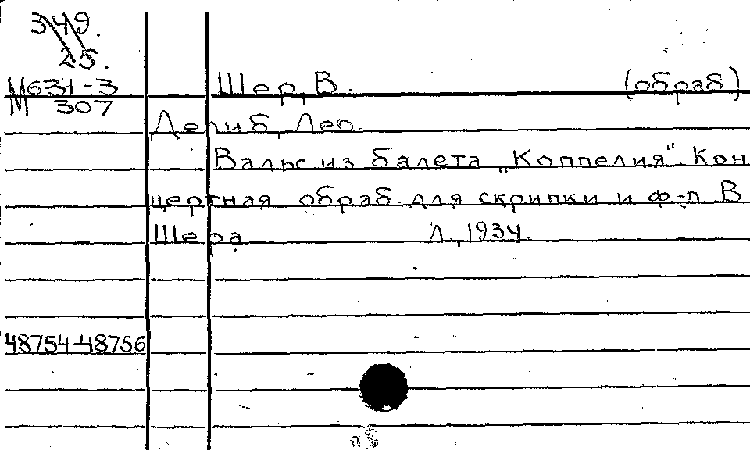 349.
25.
М631-3
М 307
Шер, В. (обраб)
Делиб, Лео.
Вальс из балета „Коппелия". Кон
цертная обраб для скрипки и ф-п В
Шера Л., 1934.
48754-48756